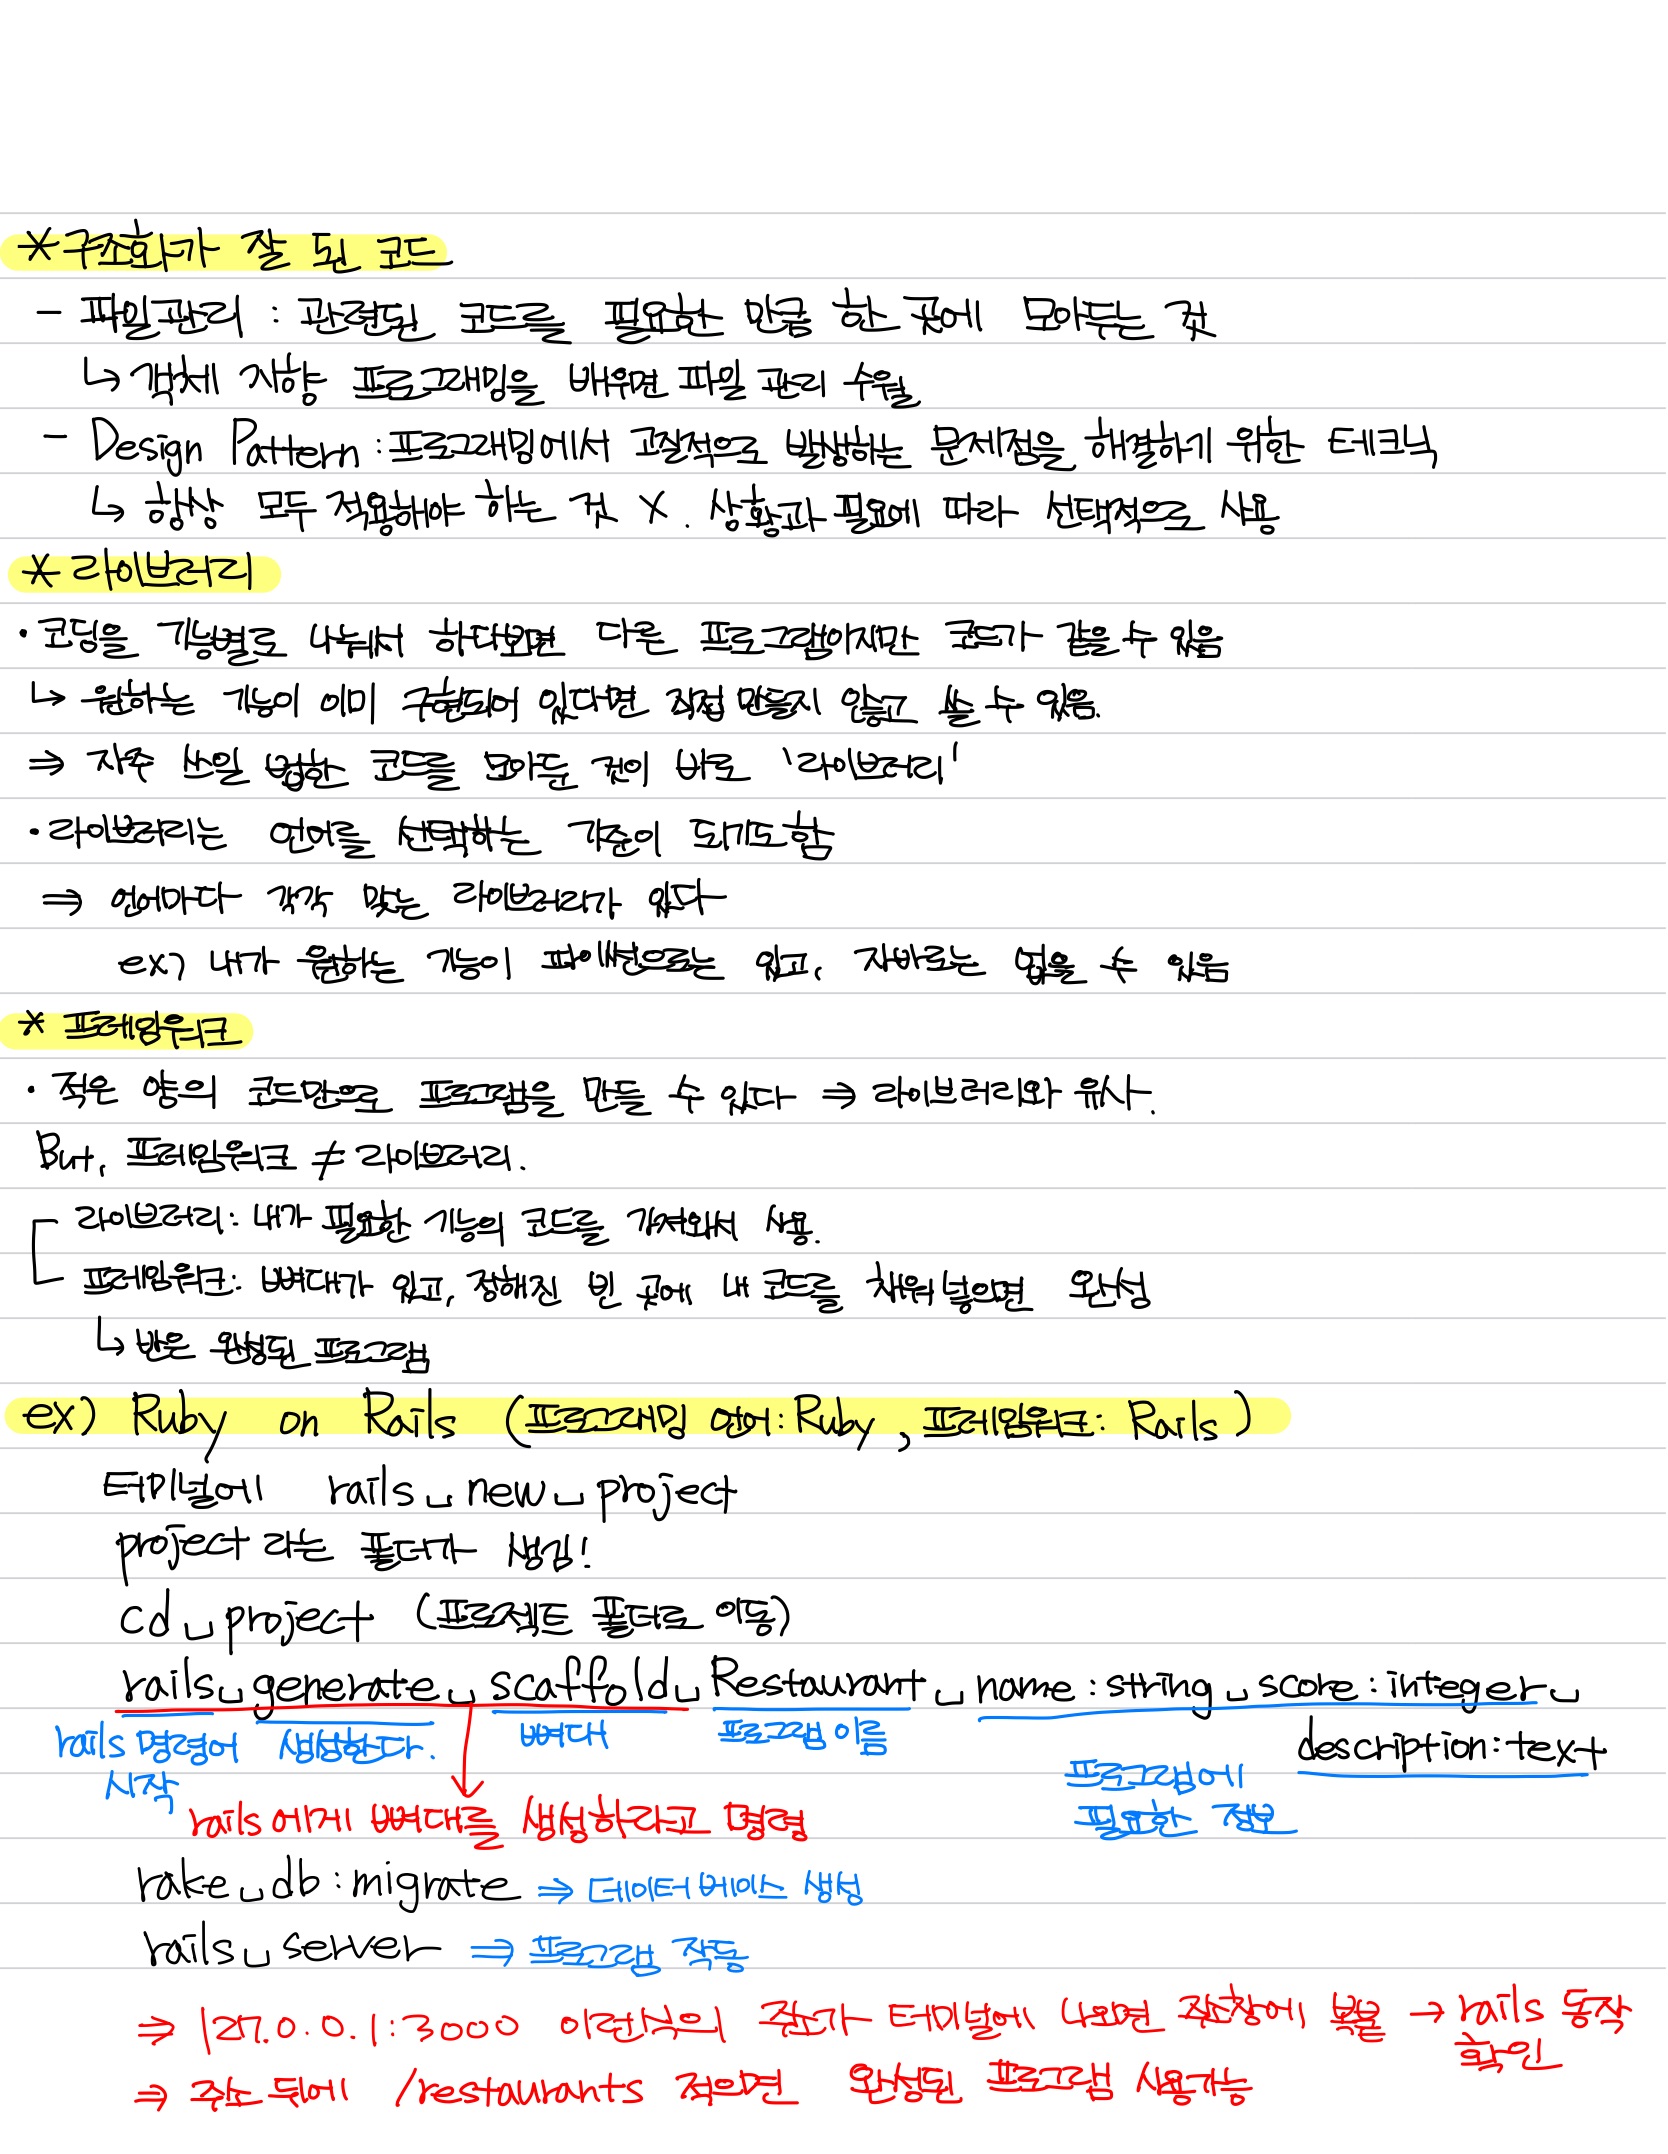 * 구조화가 잘 된 코드
- 파일관리 : 관련된 코드를 필요한 만큼 한 곳에 모아두는 것
↳ 객체 지향 프로그래밍을 배우면 파일 관리 수월
- Design Pattern : 프로그래밍에서 고질적으로 발생하는 문제점을 해결하기 위한 테크닉
↳ 항상 모두 적용해야 하는 것 X. 상황과 필요에 따라 선택적으로 사용
* 라이브러리
· 코딩을 기능별로 나눠서 하다보면 다른 프로그램이지만 코드가 같을 수 있음
↳ 원하는 기능이 이미 구현되어 있다면 직접 만들지 않고 쓸 수 있음.
⇒ 자주 쓰일 법한 코드를 모아둔 것이 바로 '라이브러리'
· 라이브러리는 언어를 선택하는 기준이 되기도 함
⇒ 언어마다 각각 맞는 라이브러리가 있다
ex) 내가 원하는 기능이 파이썬으로는 있고, 자바로는 없을 수 있음
* 프레임워크
· 적은 양의 코드만으로 프로그램을 만들 수 있다 ⇒ 라이브러리와 유사.
But, 프레임워크 ≠ 라이브러리.
라이브러리 : 내가 필요한 기능의 코드를 가져와서 사용.
프레임워크 : 뼈대가 있고, 정해진 빈 곳에 내 코드를 채워 넣으면 완성
↳ 반은 완성된 프로그램
ex) Ruby on Rails (프로그래밍 언어 : Ruby, 프레임워크 : Rails)
터미널에 rails␣new␣project
project 라는 폴더가 생김!
cd␣project (프로젝트 폴더로 이동)
rails␣generate␣scaffold␣Restaurant␣name:string␣score:integer␣
description:text
rails 명령어 생성한다. 뼈대 프로그램 이름
시작
프로그램에
필요한 정보
rails에게 뼈대를 생성하라고 명령
rake␣db:migrate ⇒ 데이터베이스 생성
rails␣server ⇒ 프로그램 작동
⇒ 127.0.0.1:3000 이런식의 주소가 터미널에 나오면 주소창에 복붙 → rails 동작
확인
⇒ 주소 뒤에 /restaurants 적으면 완성된 프로그램 사용가능